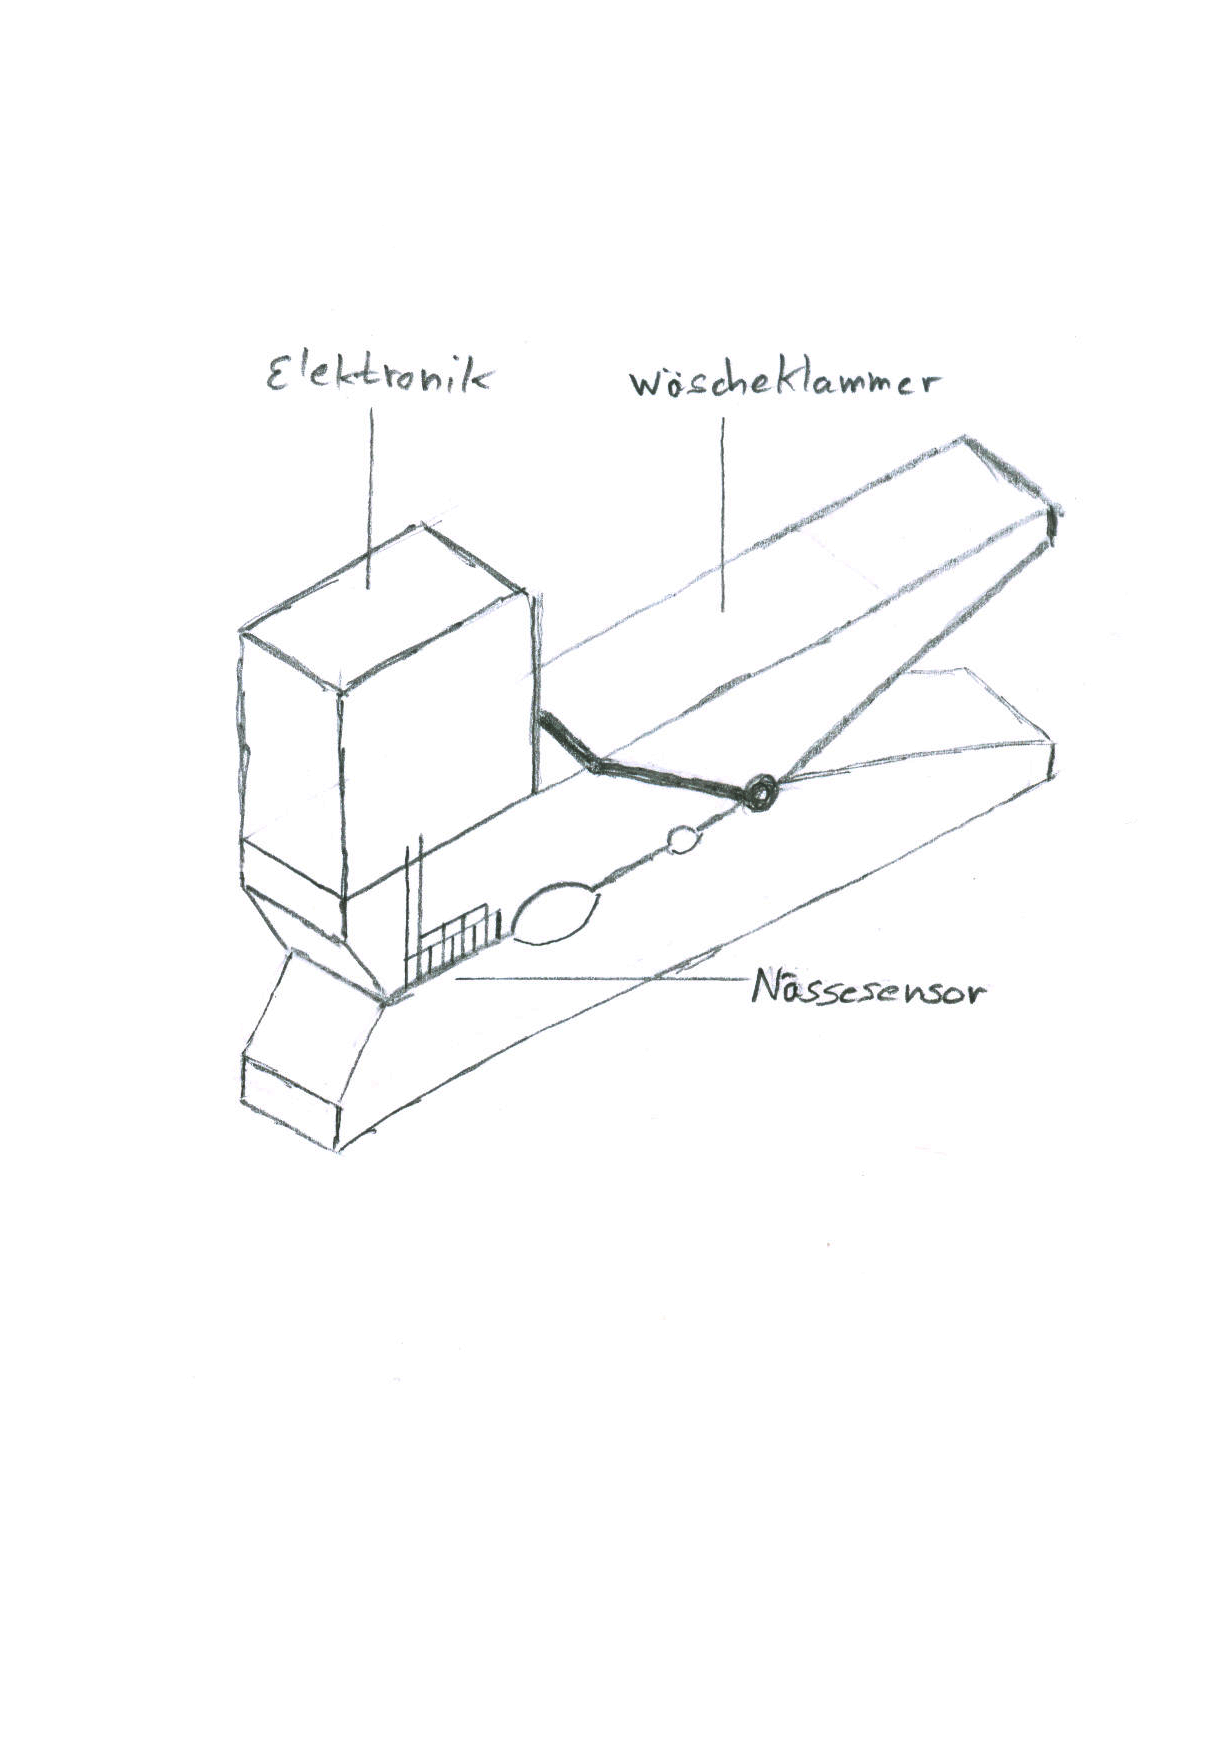 Elektronik
Wäscheklammer
Nässesensor